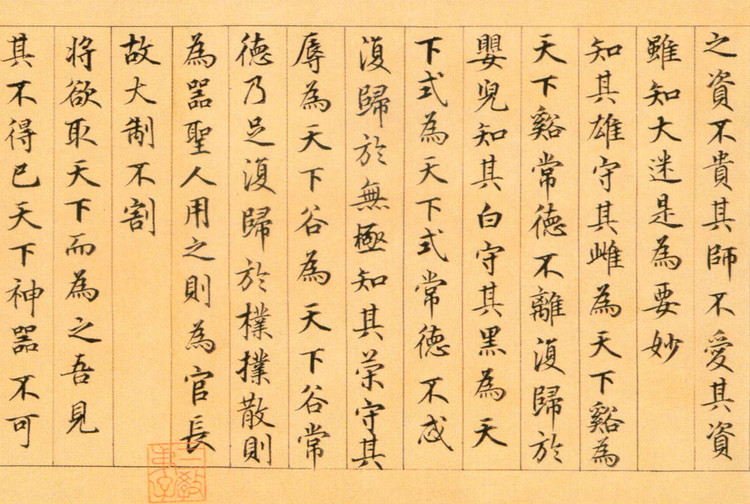 之資不貴其師不愛其資
雖知大迷是為要妙
知其雄守其雌為天下谿為
天下谿常徳不離復歸於
嬰兒知其白守其黑為天
下式為天下式常徳不忒
復歸於無極知其榮守其
辱為天下谷為天下谷常
徳乃足復歸於樸樸散則
為噐聖人用之則為官長
故大制不割
将欲取天下而為之吾見
其不得已天下神噐不可